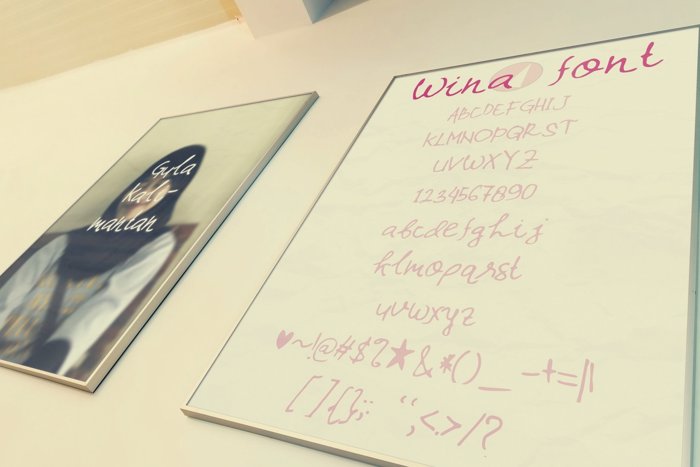 Gula
Kali-
mantan
Wina font
ABCDEFGHIJ
KLMNOPQRST
UVWXYZ
1234567890
abcdefghij
klmopqrst
uvwxyz
♥~!@#$?★&*()_ -+=||
[]{};: “,<.>/?